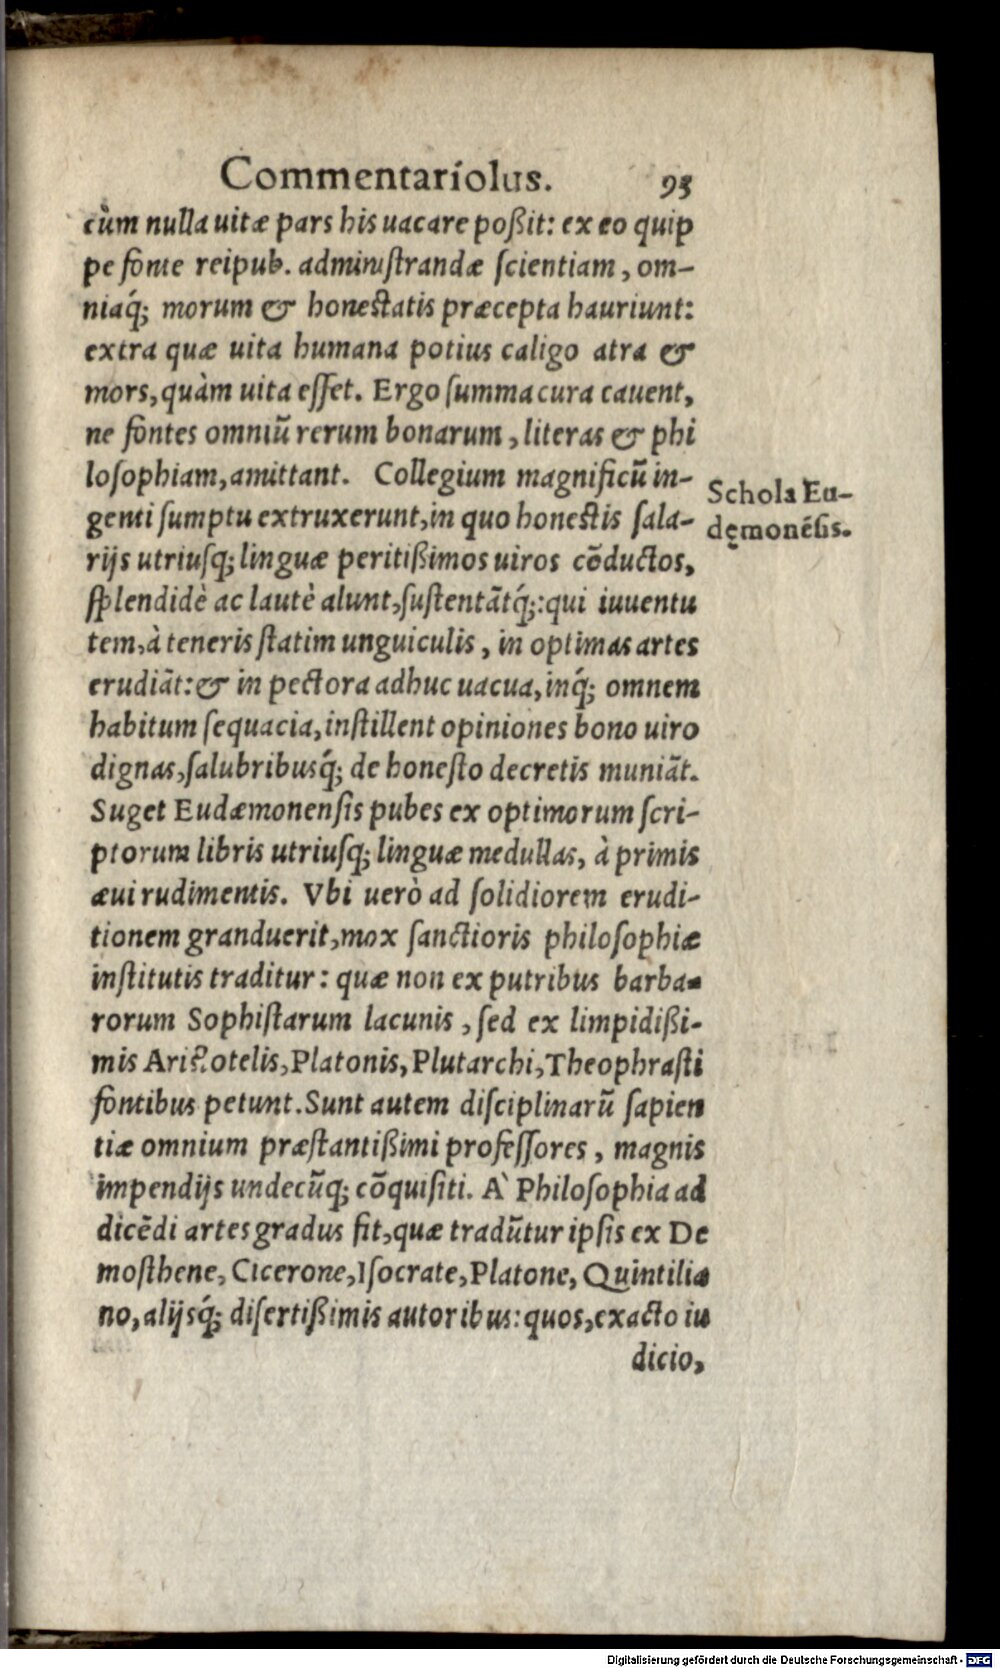 Commentariolus. 93
cùm nulla uitæ pars his uacare poßit: ex eo quip
pe fonte reipub. administrandæ ſcientiam, om-
niaq́; morum & honestatis præcepta hauriunt:
extra quæ uita humana potius caligo atra &
mors, quàm uita eſſet. Ergo ſumma cura cauent,
ne fontes omniũ rerum bonarum, literas & phi
loſophiam, amittant. Collegium magnificũ in-
genti ſumptu extruxerunt, in quo honestis ſala-
rijs utriuſq; linguæ peritißimos uiros cõductos,
ſplendidè ac lautè alunt, ſuſtentãtq́;: qui iuuentu
tem, à teneris ſtatim unguiculis, in optimas artes
erudiãt: & in pectora adhuc uacua, inq́; omnem
habitum ſequacia, inſtillent opiniones bono uiro
dignas, ſalubribusq́; de honeſto decretis muniãt.
Suget Eudæmonenſis pubes ex optimorum ſcri-
ptorum libris utriuſq; linguæ medullas, à primis
æui rudimentis. Vbi uerò ad ſolidiorem erudi-
tionem granduerit, mox ſanctioris philoſophiæ
inſtitutis traditur: quæ non ex putribus barba-
rorum Sophiſtarum lacunis, ſed ex limpidißi-
mis Ariſtotelis, Platonis, Plutarchi, Theophraſti
fontibus petunt. Sunt autem diſciplinarũ ſapien
tiæ omnium præſtantißimi profeſſores, magnis
impendijs undecũq; cõquiſiti. À Philoſophia ad
dicẽdi artes gradus fit, quæ tradũtur ipſis ex De
moſthene, Cicerone, Iſocrate, Platone, Quintilia
no, alijsq́; diſertißimis autoribus: quos, exacto iu
dicio,
Schola Eu-
dęmonẽſis.
Digitalisierung gefördert durch die Deutsche Forschungsgemeinschaft - DFG